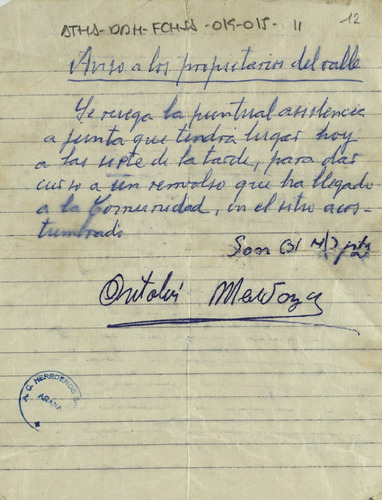 ATHA-DAH-FCHSS-019-015-11
12
Aviso a los propietarios del valle
Se ruega la puntual asistencia
a junta que tendrá lugar hoy
a las siete de la tarde, para dar
curso a un remvolso que ha llegado
a la Comunidad, en el sitio acos-
tumbrado
Mendoza
A.G. HEREDEROS
ARANA